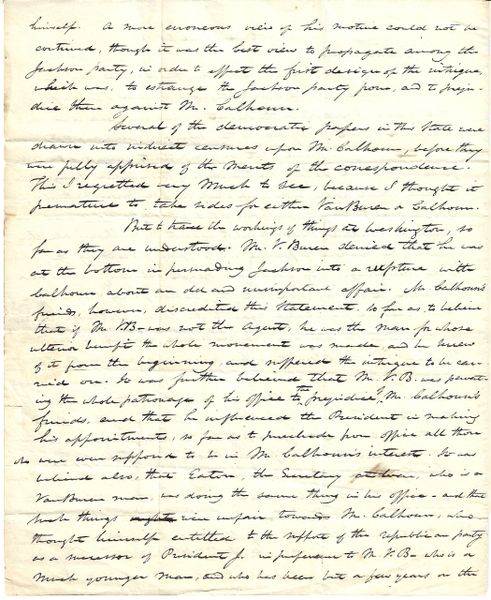 himself. A more erroneous view of his motive could not be
contrived, though it was the best view to propagate among the
Jackson party, in order to effect the first design of the intrigue,
which was, to estrange the Jackson party from, and to preju-
dice them against Mr. Calhoun.
Several of the democratic papers in this State were
drawn into indirect censures upon Mr. Calhoun, before they
were fully apprised of the merits of the correspondence.
This I regretted very much to see, because I thought it
premature to take sides for either Van Buren or Calhoun.
But to trace the workings of things at Washington, so
far as they are understood. Mr. V. Buren denied that he was
at the bottom in persuading Jackson into a rupture with
Calhoun about an old and unimportant affair. Mr. Calhoun's
friends, however, discredited this statement, so far as to believe
that if Mr. VB- was not the Agent, he was the man for whose
ulterior benefit the whole movement was made, and he knew
of it from the beginning, and suffered the intrigue to be car-
ried on. It was further believed that Mr. V.B. was
ing the whole patronage of his office to the prejudice, Mr. Calhoun's
friends, and that he influenced the President in making
his appointments, so far as to preclude from office all those
who were supposed to be in Mr. Calhoun's interest. It was
believed also, that Eaton, the Secretary at War, who is a
Van Buren man, was doing the same thing in his office - and that
such things were unfair towards Mr. Calhoun, who
thought himself entitled to the support of the republican party
as a successor of President J. in preference to Mr. V.B. who is a
much younger man, and who has been but a few years on the